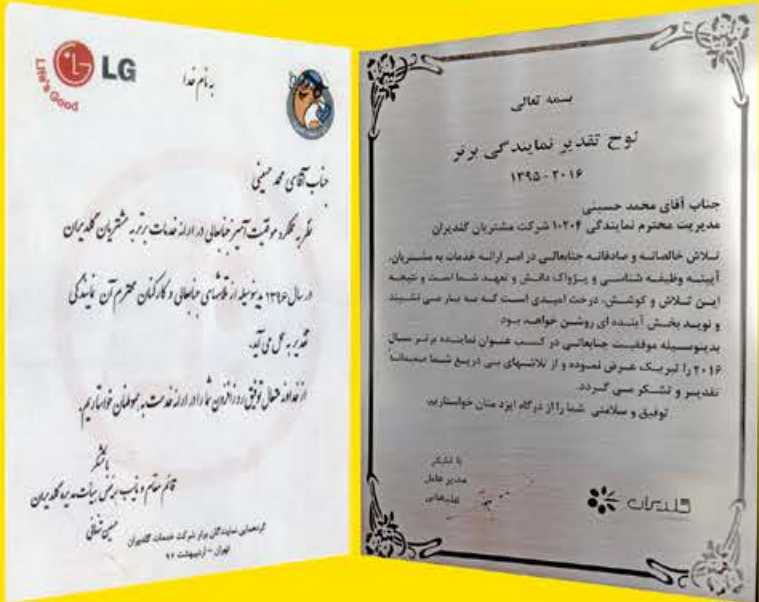 LG
Life's Good
به نام خدا
جناب آقای محمد حسینی
نظر به عملکرد موفقیت آمیز جنابعالی در ارائه خدمات برتر به مشتریان گلدیران
در سال ۱۳۹۶ بدینوسیله از تلاشهای جنابعالی و کارکنان محترم آن نمایندگی
تقدیر به عمل می آید.
از خداوند متعال توفیق روز افزون شما را در ارائه خدمت به هموطنان خواستاریم.
با تشکر
قائم مقام و نایب رئیس هیأت مدیره گلدیران
گردهمایی نمایندگان برتر شرکت خدمات گلدیران
تهران - اردیبهشت ۹۷
بسمه تعالی
لوح تقدیر نمایندگی برتر
۱۳۹۵-۲۰۱۶
جناب آقای محمد حسینی
مدیریت محترم نمایندگی ۱۰۲۰۴ شرکت مشتریان گلدیران
تلاش خالصانه و صادقانه جنابعالی در امر ارائه خدمات به مشتریان،
آیینه وظیفه شناسی و پژواک دانش و تعهد شما است و نتیجه
این تلاش و کوشش، درخت امیدی است که به بار می نشیند
و نوید بخش آینده ای روشن خواهد بود
بدینوسیله موفقیت جنابعالی در کسب عنوان نماینده برتر سال
۲۰۱۶ را تبریک عرض نموده و از تلاشهای بی دریغ شما صمیمانه
تقدیر و تشکر می گردد.
توفیق و سلامتی شما را از درگاه ایزد منان خواستاریم.
با تشکر
مدیر عامل
گلدیران